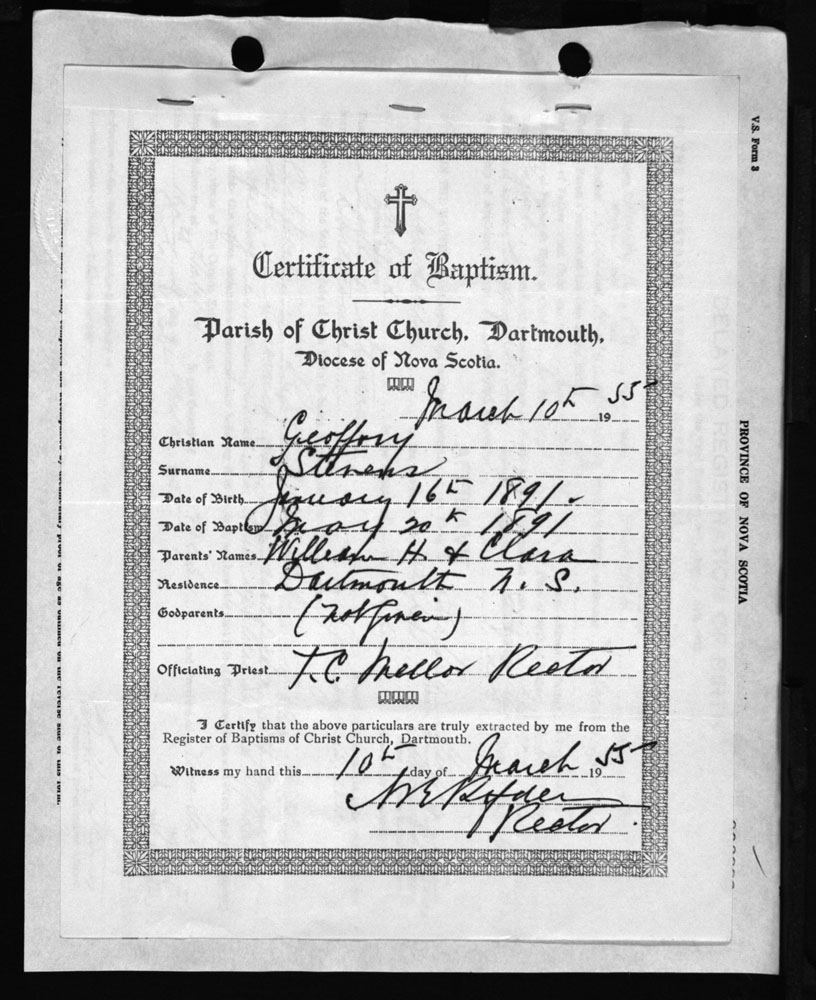 V.S. Form 3
PROVINCE OF NOVA SCOTIA
Certificate of Baptism.
Parish of Christ Church, Dartmouth,
Diocese of Nova Scotia.
March 10th 1955
Christian Name Geoffory
Surname Stevens
Date of Birth January 16th 1891.
Date of Baptism May 20th 1891
Parents' Names William H & Clara
Residence Dartmouth N. S.
Godparents (not given)
Officiating Priest T.C. Mellor Rector
I Certify that the above particulars are truly extracted by me from the
Register of Baptisms of Christ Church, Dartmouth.
Witness my hand this 10th day of March 1955
Rector.